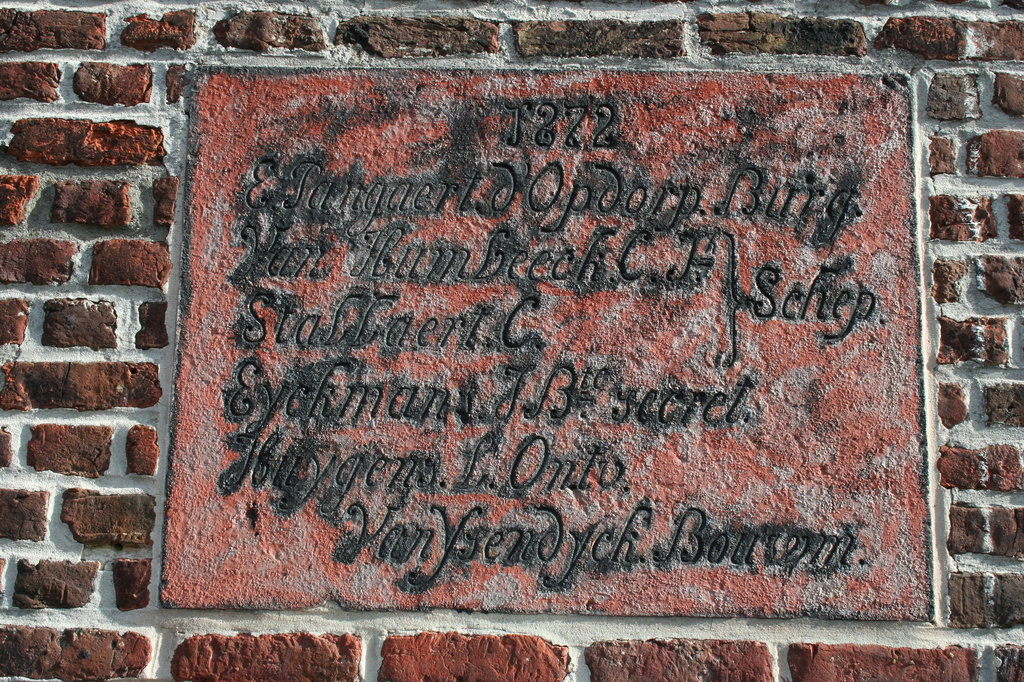 1872
E. Pangaert. d'Opdorp. Burg.
Van Humbeeck. C. Fs Schep.
Stallaert. C.
Eyckmans. J Bte secret.
Huygens. L. Ontv.
Van Ysendyck. Bouwm.